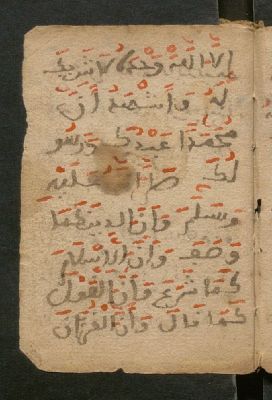 إلا الله وحده لا شريك
له وأشهد أن
محمدا عبده ورسو
له صل الله عليه
وسلم وأن الدين كما
وصف وأن الإسلام
كما شرع وأن القول
كما قال وأن القرءان